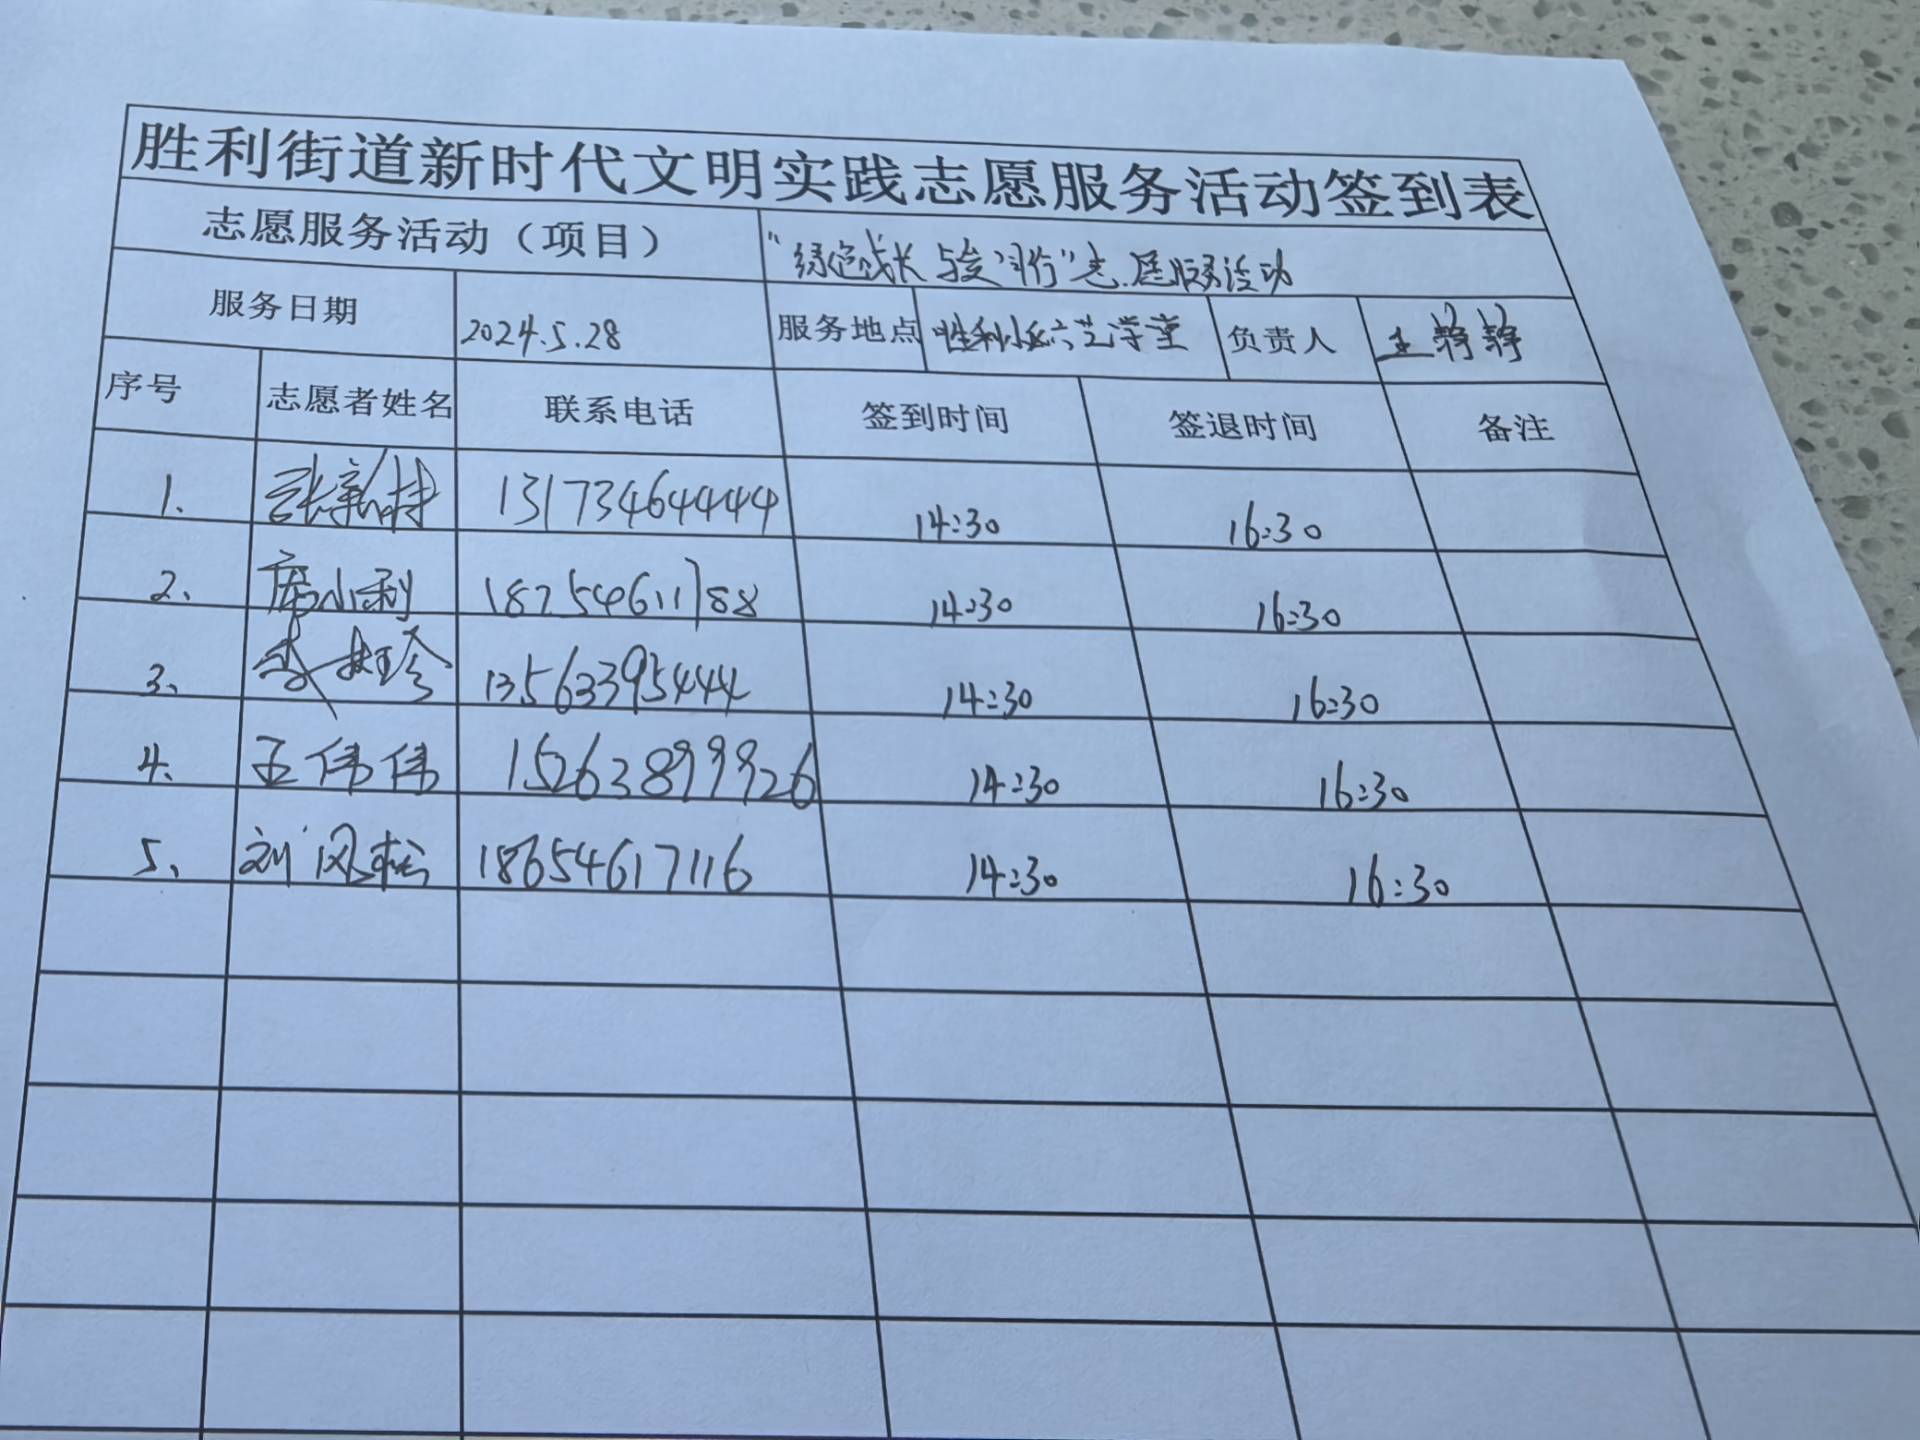 胜利街道新时代文明实践志愿服务活动签到表
志愿服务活动（项目） "绿色成长 与爱同行"志愿服务活动
服务日期 2024.5.28 服务地点 胜利社区六艺学堂 负责人 王静静
序号 志愿者姓名 联系电话 签到时间 签退时间 备注
1. 13173464444 14:30 16:30
2. 席小利 18254611788 14:30 16:30
3. 13563395444 14:30 16:30
4. 王伟伟 15263899926 14:30 16:30
5. 刘风松 18654617116 14:30 16:30